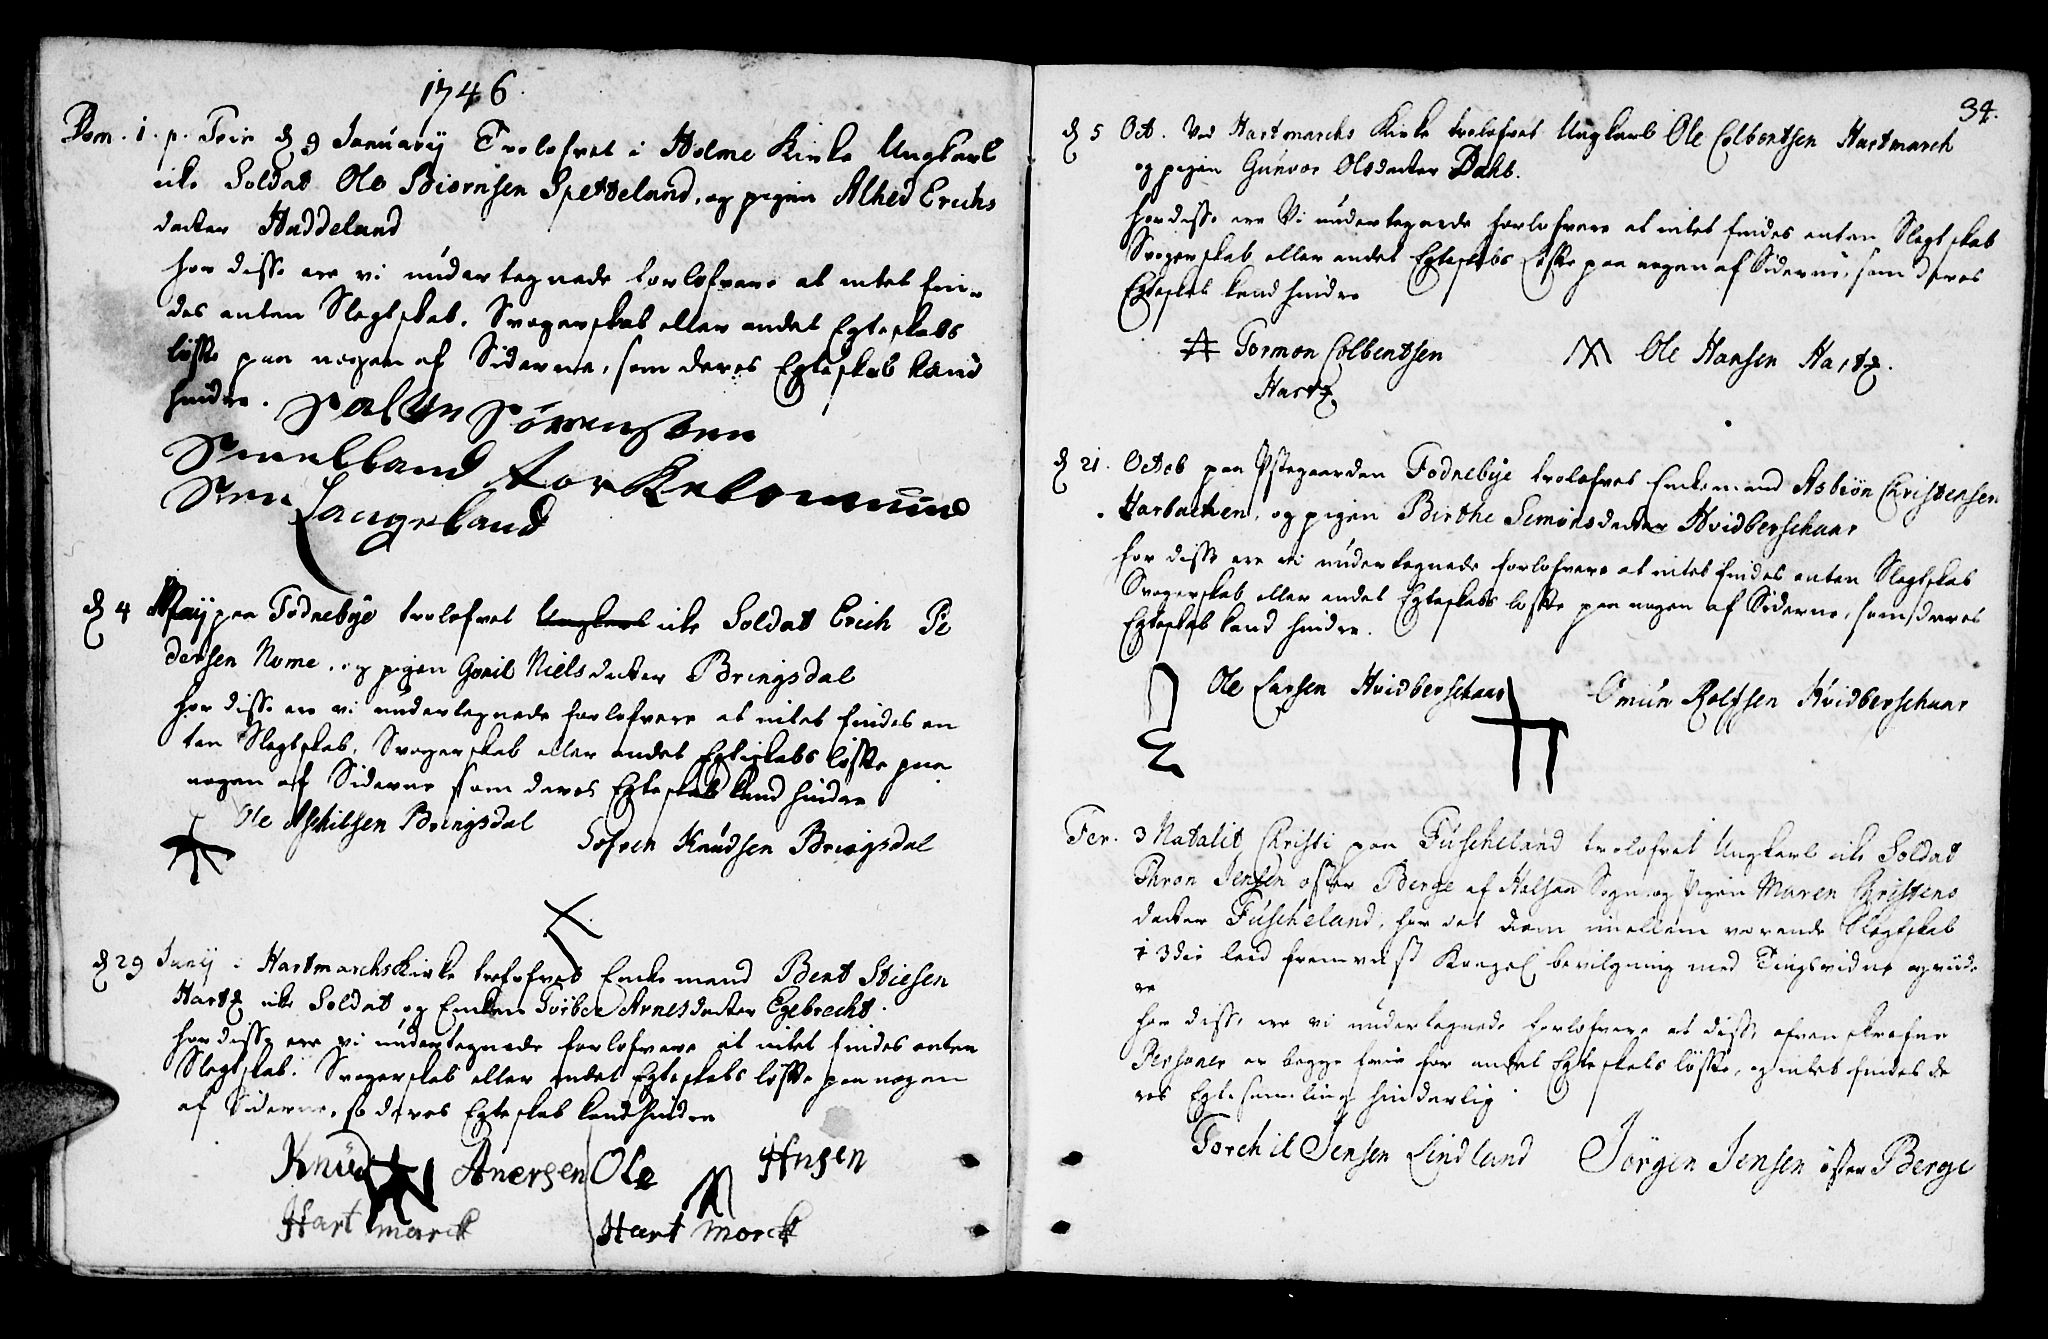 1746.
Dom. 1. p. Trin d 9 January Trolofvet i Holme Kirke Ungkarl
icke Soldat Ole Biørnsen Spetteland, og pigen Alhed Erichs
datter Haddeland
for disse ere vi undertegnede forlofvere at intet fin-
des enten Slegtskab, Svogerskab eller andet Egteskabs
løfte paa nogen af Siderne, som deres Egteskab kand
hindre. Salve Sørensøen
Smelland Torkel omund
Søen Langeland
d 4 May paa Fodnebye trolofvet Ungkarl icke Soldat Erich Pe
dersen Nome, og pigen Goril Nielsdatter Bringsdal
for disse ere vi undertegnede forlofvere at intet findes en
ten Slegtskab, Svogerskab eller andet Egteskabs løfte paa
nogen af Siderne som deres Egteskab kand hindre
Ole Aschilsen Bringsdal
Sofren Knudsen Bringsdal
d 29 Juny i Hartmarchs Kirke trolofvet Enkemand Bent Stiesen
Hartm icke Soldat og Enken Torbor Arnesdatter Egebrecht.
for disse ere vi undertegnede forlofvere at intet findes enten
Slegtskab, Svogerskab eller andet Egteskabs løfte paa nogen
af Siderne, so deres Egteskab kand hindre
Knud Anersen Ole Hnsen
Hartmarck Hart morck
34.
d 5 Oct. Ved Hartmarchs Kirke trolofvet Ungkarl Ole Colbentsen Hartmarch
og pigen Gunvor Olsdatter Dahl.
for disse ere Vi undertegnede forlofvere at intet findes enten Slegtskab
Svogerskab eller andet Egteskabs Løfte paa nogen af Siderne, som deres
Egteskab kand hindre
Tormon Colbentsen Ole Hansen Hartm.
Hartm
d 21. Octob paa Østegaarden Fodnebye trolofvet Enkemand Asbiøn Christensen
Harbachen, og pigen Birthe Semonsdatter Hvidberschaar
for disse ere vi undertegnede forlofvere at intet findes enten Slegtskab
Svogerskab eller andet Egteskabs løfte paa nogen af Siderne, som deres
Egteskab kand hindre.
Ole Larsen Hvidberschaar Omun Rolfsen Hvidberschaar
Fer. 3 Natalit Christi paa Fuscheland trolofvet Ungkarl icke Soldat
Thron Jensen øster Berge af Halsaa Sogn og Pigen Maren Christens
datter Fuscheland, for det dem imellem værende Slegtskab
i 3die leed fremvist Kongel bevilgning med Tingsvidne
for disse ere vi undertegnede forlofvere at disse ofvenskrefne
Personer er begge frie for andet Egteskabs løfte, og intet findes de
res Egtesamling hinderlig.
Torchil Jensen Lindland Jørgen Jensen øster Berge